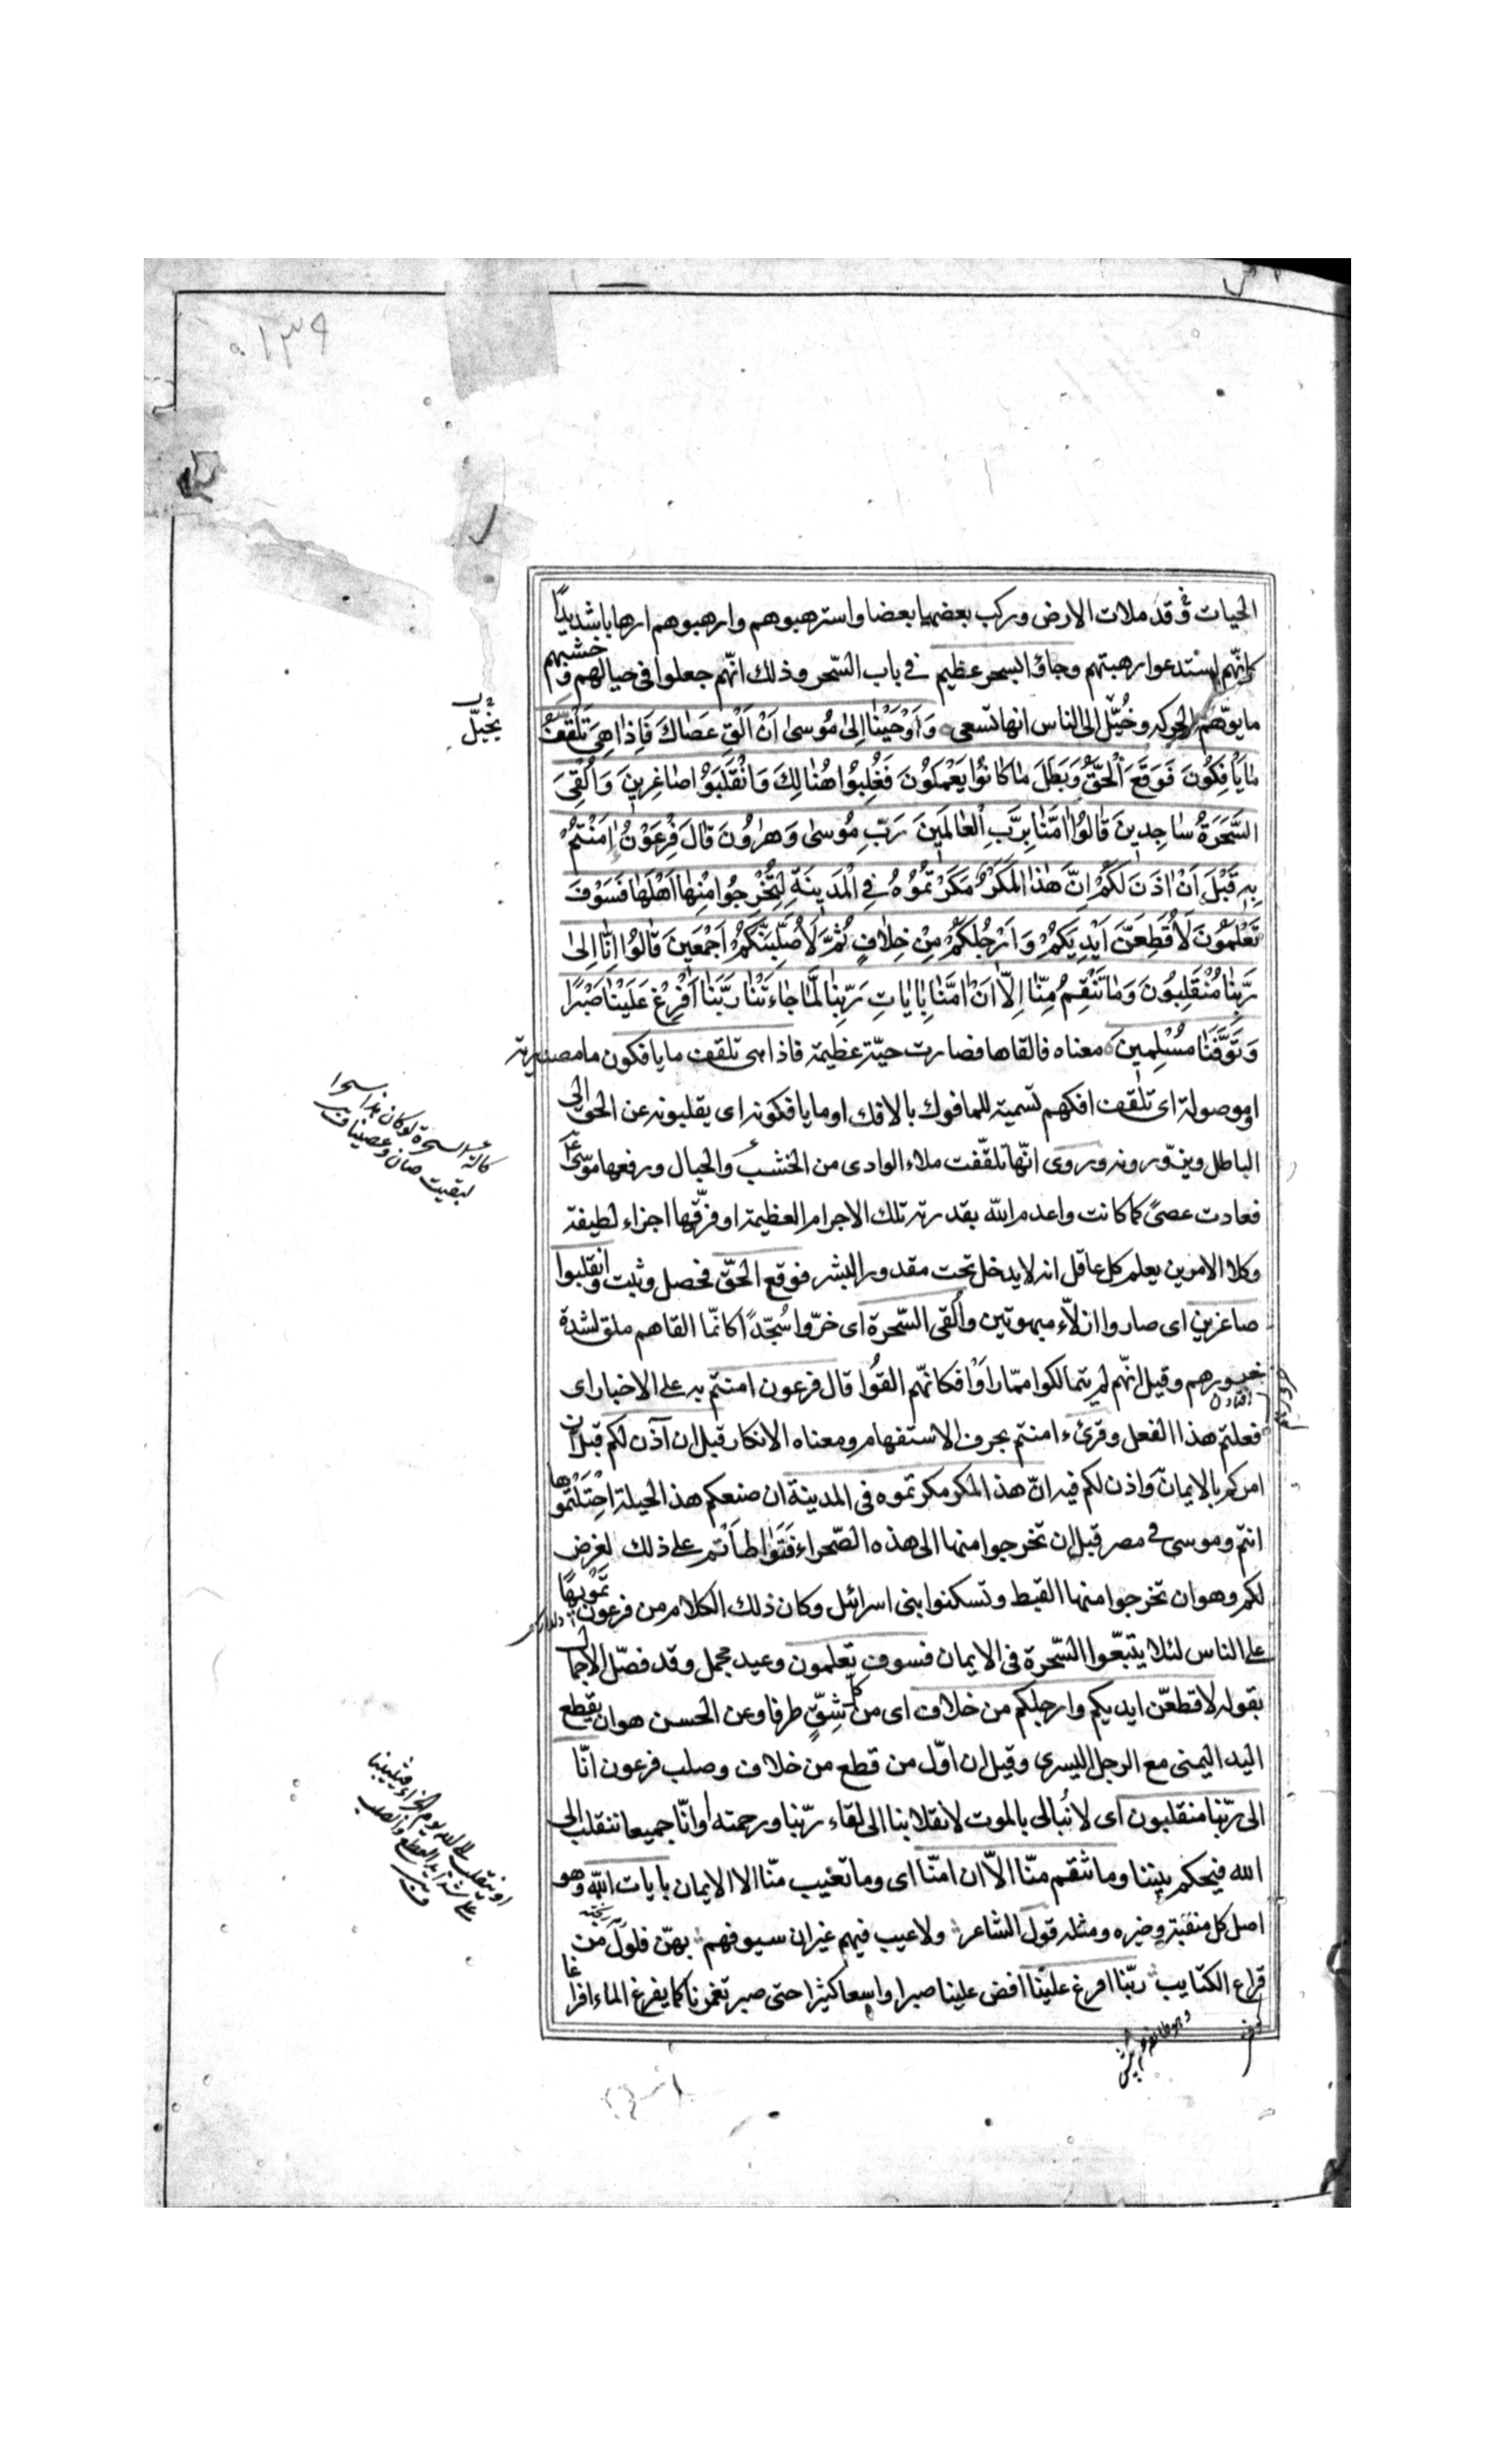 ١٣٩
الحيات قد ملات الارض وركب بعضها بعضا واسترهبوهم وارهبوهم ارهابا شديدًا
كانّهم استدعوا رهبتهم وجاؤ بسحر عظيم فى باب السّحر وذلك انّهم جعلوا فى حبالهم وخشبهم
ما يوهم الحركه وخُيّل الى الناس انها تسعى وَاَوْحَيْنٰا اِلىٰ مُوسىٰ اَنْ اَلْقِ عَصٰاكَ فَاِذٰا هِىَ تَلْقَفُ
يخيّل
مٰا يَأْفِكُونَ فَوَقَعَ الْحَقُّ وَبَطَلَ مٰا كٰانُوا يَعْمَلُونَ فَغُلِبُوا هُنٰالِكَ وَانْقَلَبُوْا صٰاغِرِينَ وَاُلْقِىَ
السَّحَرَةُ سٰاجِدِينَ قٰالُوا اٰمَنّٰا بِرَبِّ الْعٰالَمِينَ رَبِّ مُوسىٰ وَهٰرُونَ قٰالَ فِرْعَوْنُ اٰمَنْتُمْ
بِهِ قَبْلَ اَنْ اٰذَنَ لَكُمْ اِنَّ هٰذٰا لَمَكْرٌ مَكَرْتُمُوهُ فِى الْمَدِينَةِ لِتُخْرِجُوا مِنْهٰا اَهْلَهٰا فَسَوْفَ
تَعْلَمُونَ لَاُقَطِّعَنَّ اَيْدِيَكُمْ وَاَرْجُلَكُمْ مِنْ خِلٰافٍ ثُمَّ لَاُصَلِّبَنَّكُمْ اَجْمَعِينَ قٰالُوا اِنّٰا اِلىٰ
رَبِّنٰا مُنْقَلِبُونَ وَمٰا تَنْقِمُ مِنّٰا اِلّٰا اَنْ اٰمَنّٰا بِاٰيٰاتِ رَبِّنٰا لَمّٰا جٰاءَتْنٰا رَبَّنٰا اَفْرِغْ عَلَيْنٰا صَبْرًا
وَتَوَفَّنٰا مُسْلِمِينَ معناه فالقاها فصارت حيّة عظيمة فاذا هى تلقف ما يافكون ما مصدرية
او موصولة اى تلقف افكهم تسمية للمافوك بالافك او ما يافكونه اى يقلبونه عن الحق الى
قالت السحرة لو كان هذا سحرا
لبقيت حبالنا وعصينا
الباطل ويزوّرونه وروى انّها تلقّفت ملاء الوادى من الخشب والحبال ورفعها موسى
فعادت عصىً كما كانت واعدم الله بقدرته تلك الاجرام العظيمة او فرّقها اجزاء لطيفة
وكلا الامرين يعلم كل عاقل انه لا يدخل تحت مقدور البشر فوقع الحقّ فحصل وثبت وانقلبوا
صاغرين اى صاروا اذلّاء مبهوتين واُلقى السّحرة اى خرّوا سُجّدًا كانّما القاهم ملق لشدة
خرورهم وقيل انّهم لم يتمالكوا ممّا راَوْا فكانّهم اُلقُوا قال فرعون امنتم به على الاخبار اى
فعلتم هذا الفعل وقرئ ءامنتم بحرف الاستفهام ومعناه الانكار قبل ان آذن لكم قبل ان
امركم بالايمان واذن لكم فيه انّ هذا لمكر مكرتموه فى المدينة ان صنعكم هذا لحيلة احْتَلْتموها
انتم وموسى فى مصر قبل ان تخرجوا منها الى هذه الصّحراء فَتَوٰاطَأْتم على ذلك لغرض
لكم وهو ان تخرجوا منها القبط وتسكنوا بنى اسرائيل وكان ذلك الكلام من فرعون تَمْويهًا
على الناس لئلا يتّبعوا السّحرة فى الايمان فسوف تعلمون وعيد مجمل وقد فصّل الاجمال
بقوله لاقطعّن ايديكم وارجلكم من خلاف اى من كل شِقٍّ طرفا وعن الحسن هو ان يقطع
اليد اليمنى مع الرجل اليسرى وقيل ان اوّل من قطع من خلاف وصلب فرعون انّا
الى ربّنا منقلبون اى لا نُبالى بالموت لانقلابنا الى لقاء ربّنا ورحمته او انّا جميعا ننقلب الى
او ننقلب الى الله يوم الجزاء فيثيبنا
على شدائد القطع والصلب
الله فيحكم بيننا وما تنقم منّا الّا ان امنّا اى وما تعيب منّا الا الايمان بايات الله وهو
اصل كل منقبة وخيره ومثله قول الشاعر ولا عيب فيهم غير ان سيوفهم بهنّ فلول من
قراع الكتايب ربّنا افرغ علينا افض علينا صبرا واسعا كثيرا حتى صبر تغمرنا كما يفرغ الماء افراغا